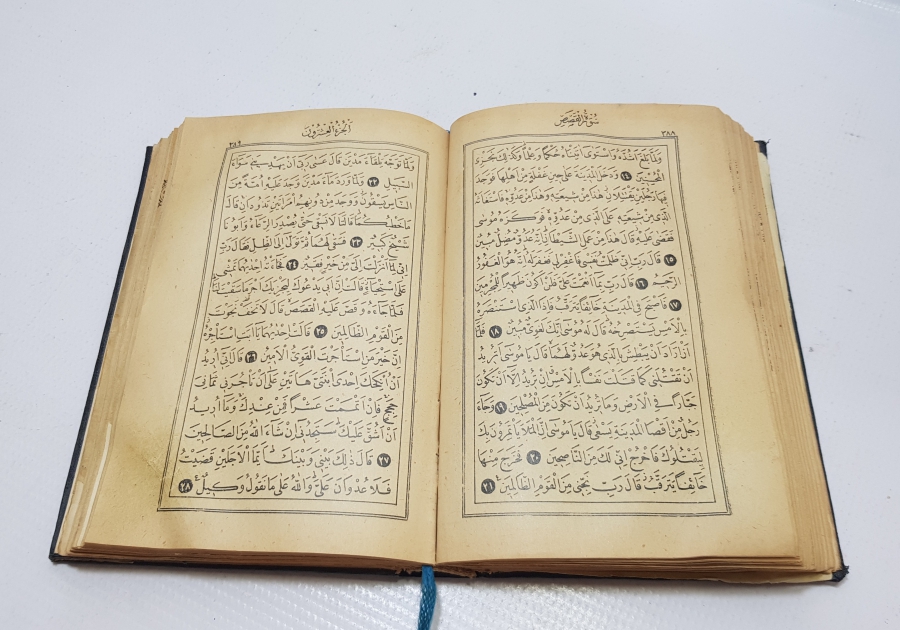 سورة القصص
٣٨٨
وَلَمَّا بَلَغَ اَشُدَّهُ وَاسْتَوٰى اٰتَيْنَاهُ حُكْمًا وَعِلْمًا وَكَذٰلِكَ نَجْزِى
الْمُحْسِنِينَ ١٤ وَدَخَلَ الْمَدِينَةَ عَلٰى حِينِ غَفْلَةٍ مِنْ اَهْلِهَا فَوَجَدَ
فِيهَا رَجُلَيْنِ يَقْتَتِلَانِ هٰذَا مِنْ شِيعَتِهِ وَهٰذَا مِنْ عَدُوِّهِ فَاسْتَغَاثَهُ
الَّذِى مِنْ شِيعَتِهِ عَلَى الَّذِى مِنْ عَدُوِّهِ فَوَكَزَهُ مُوسٰى
فَقَضٰى عَلَيْهِ قَالَ هٰذَا مِنْ عَمَلِ الشَّيْطَانِ اِنَّهُ عَدُوٌّ مُضِلٌّ مُبِينٌ
١٥ قَالَ رَبِّ اِنِّى ظَلَمْتُ نَفْسِى فَاغْفِرْ لِى فَغَفَرَ لَهُ اِنَّهُ هُوَ الْغَفُورُ
الرَّحِيمُ ١٦ قَالَ رَبِّ بِمَا اَنْعَمْتَ عَلَىَّ فَلَنْ اَكُونَ ظَهِيرًا لِلْمُجْرِمِينَ
١٧ فَاَصْبَحَ فِى الْمَدِينَةِ خَائِفًا يَتَرَقَّبُ فَاِذَا الَّذِى اسْتَنْصَرَهُ
بِالْاَمْسِ يَسْتَصْرِخُهُ قَالَ لَهُ مُوسٰى اِنَّكَ لَغَوِىٌّ مُبِينٌ ١٨ فَلَمَّا
اَنْ اَرَادَ اَنْ يَبْطِشَ بِالَّذِى هُوَ عَدُوٌّ لَهُمَا قَالَ يَا مُوسٰى اَتُرِيدُ
اَنْ تَقْتُلَنِى كَمَا قَتَلْتَ نَفْسًا بِالْاَمْسِ اِنْ تُرِيدُ اِلَّا اَنْ تَكُونَ
جَبَّارًا فِى الْاَرْضِ وَمَا تُرِيدُ اَنْ تَكُونَ مِنَ الْمُصْلِحِينَ ١٩ وَجَاءَ
رَجُلٌ مِنْ اَقْصَا الْمَدِينَةِ يَسْعٰى قَالَ يَا مُوسٰى اِنَّ الْمَلَاَ يَاْتَمِرُونَ بِكَ
لِيَقْتُلُوكَ فَاخْرُجْ اِنِّى لَكَ مِنَ النَّاصِحِينَ ٢٠ فَخَرَجَ مِنْهَا
خَائِفًا يَتَرَقَّبُ قَالَ رَبِّ نَجِّنِى مِنَ الْقَوْمِ الظَّالِمِينَ ٢١
الجزء العشرون
٣٨٩
وَلَمَّا تَوَجَّهَ تِلْقَاءَ مَدْيَنَ قَالَ عَسٰى رَبِّى اَنْ يَهْدِيَنِى سَوَاءَ
السَّبِيلِ ٢٢ وَلَمَّا وَرَدَ مَاءَ مَدْيَنَ وَجَدَ عَلَيْهِ اُمَّةً مِنَ
النَّاسِ يَسْقُونَ وَوَجَدَ مِنْ دُونِهِمُ امْرَاَتَيْنِ تَذُودَانِ قَالَ
مَا خَطْبُكُمَا قَالَتَا لَا نَسْقِى حَتّٰى يُصْدِرَ الرِّعَاءُ وَاَبُونَا
شَيْخٌ كَبِيرٌ ٢٣ فَسَقٰى لَهُمَا ثُمَّ تَوَلّٰى اِلَى الظِّلِّ فَقَالَ رَبِّ
اِنِّى لِمَا اَنْزَلْتَ اِلَىَّ مِنْ خَيْرٍ فَقِيرٌ ٢٤ فَجَاءَتْهُ اِحْدٰيهُمَا تَمْشِى
عَلَى اسْتِحْيَاءٍ قَالَتْ اِنَّ اَبِى يَدْعُوكَ لِيَجْزِيَكَ اَجْرَ مَا سَقَيْتَ لَنَا
فَلَمَّا جَاءَهُ وَقَصَّ عَلَيْهِ الْقَصَصَ قَالَ لَا تَخَفْ نَجَوْتَ
مِنَ الْقَوْمِ الظَّالِمِينَ ٢٥ قَالَتْ اِحْدٰيهُمَا يَا اَبَتِ اسْتَاْجِرْهُ
اِنَّ خَيْرَ مَنِ اسْتَاْجَرْتَ الْقَوِىُّ الْاَمِينُ ٢٦ قَالَ اِنِّى اُرِيدُ
اَنْ اُنْكِحَكَ اِحْدَى ابْنَتَىَّ هَاتَيْنِ عَلٰى اَنْ تَاْجُرَنِى ثَمَانِىَ
حِجَجٍ فَاِنْ اَتْمَمْتَ عَشْرًا فَمِنْ عِنْدِكَ وَمَا اُرِيدُ
اَنْ اَشُقَّ عَلَيْكَ سَتَجِدُنِى اِنْ شَاءَ اللّٰهُ مِنَ الصَّالِحِينَ
٢٧ قَالَ ذٰلِكَ بَيْنِى وَبَيْنَكَ اَيَّمَا الْاَجَلَيْنِ قَضَيْتُ
فَلَا عُدْوَانَ عَلَىَّ وَاللّٰهُ عَلٰى مَا نَقُولُ وَكِيلٌ ٢٨